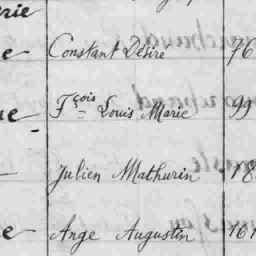 erie
e Constant Désiré 76
ue Fçois Louis Marie 99
Julien Mathurin 18
e Ange Augustin 161